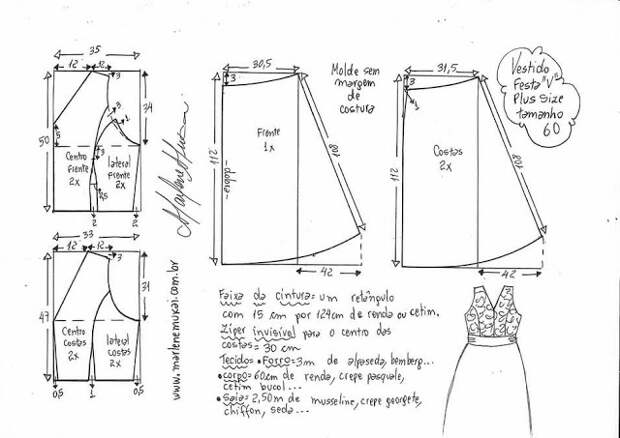 35
12 12
3
3
1
34
50
5
3
Centro
frente
2x
lateral
frente
2x
2,5
2
33
12 12
3
31
47
Centro
costas
2x
lateral
costas
2x
0,5 1 0,5
Marlene Mukai
www.marlenemukai.com.br
30,5
3
Molde sem
margem
de
costura
Frente
1x
112
--dobra--
108
42
31,5
3
1
Costas
2x
112
108
42
Vestido
Festa "V"
Plus Size
tamanho
60
Faixa da cintura: um retângulo
com 15 cm por 124cm de renda ou cetim.
Zíper invisível para o centro das
costas = 30 cm
Tecido: • Forro: 3m de alpaseda, bemberg...
• corpo: 60cm de renda, crepe pasquale,
cetim bucol...
• Saia: 2,50m de musseline, crepe georgete,
chiffon, seda...